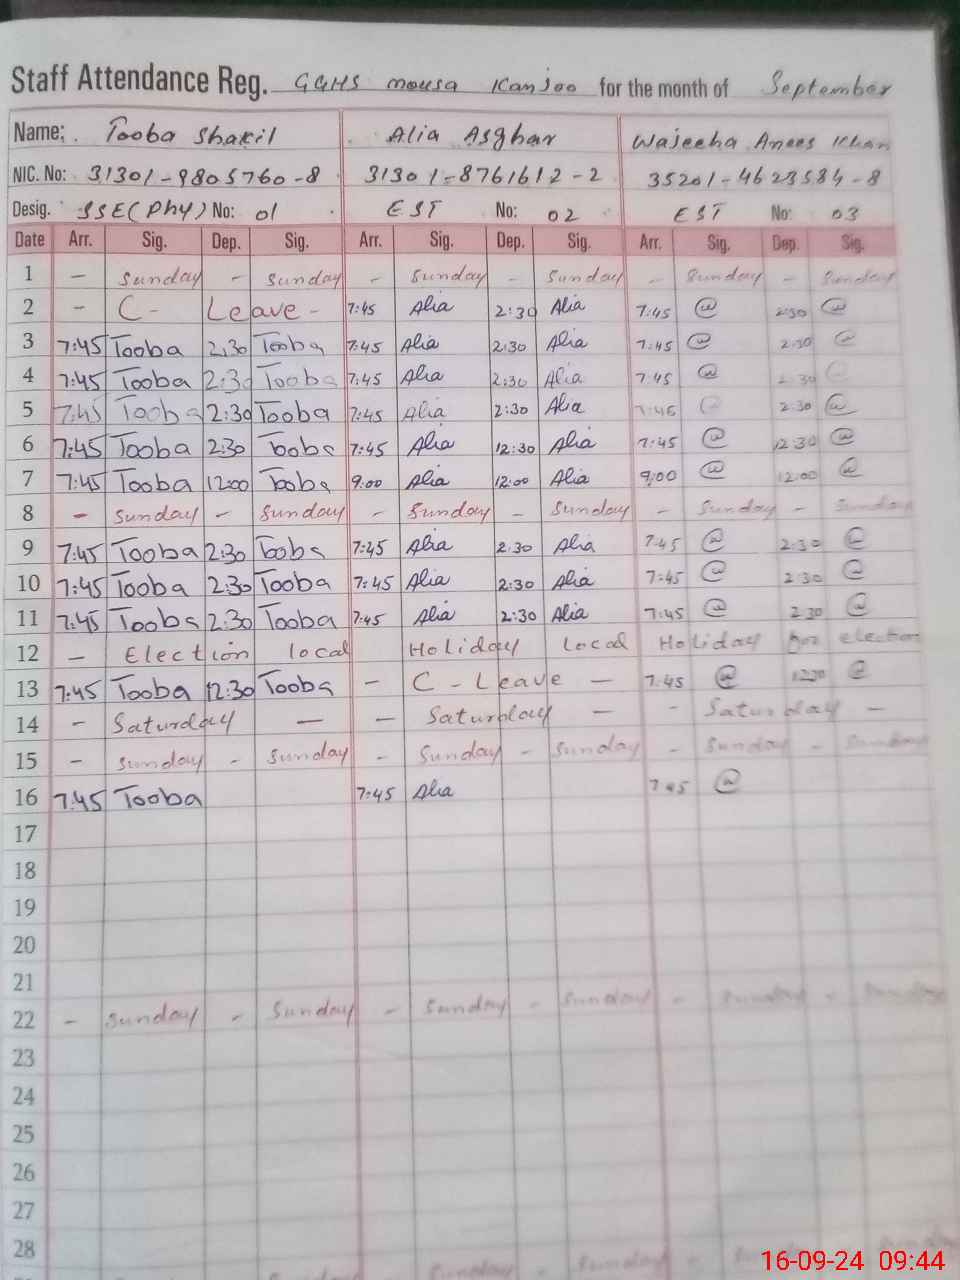 Staff Attendance Reg. GGHS mousa Kanjoo for the month of September
Name: Tooba Shakil Alia Asghar Wajeeha Anees Khan
NIC. No: 31301-9805760-8 31301-8761612-2 35201-4623584-8
Desig. SSE(Phy) No: 01 EST No: 02 EST No: 03
Date Arr. Sig. Dep. Sig. Arr. Sig. Dep. Sig. Arr. Sig. Dep. Sig.
1 - Sunday - Sunday - Sunday - Sunday - Sunday - Sunday
2 - C- Leave - 7:45 Alia 2:30 Alia 7:45 @ 2:30 @
3 7:45 Tooba 2:30 Tooba 7:45 Alia 2:30 Alia 7:45 @ 2:30 @
4 7:45 Tooba 2:30 Tooba 7:45 Alia 2:30 Alia 7:45 @ 2:30 @
5 7:45 Tooba 2:30 Tooba 7:45 Alia 2:30 Alia 7:45 @ 2:30 @
6 7:45 Tooba 2:30 Tooba 7:45 Alia 12:30 Alia 7:45 @ 12:30 @
7 7:45 Tooba 12:00 Tooba 9:00 Alia 12:00 Alia 9:00 @ 12:00 @
8 - Sunday - Sunday - Sunday - Sunday - Sunday - Sunday
9 7:45 Tooba 2:30 Tooba 7:45 Alia 2:30 Alia 7:45 @ 2:30 @
10 7:45 Tooba 2:30 Tooba 7:45 Alia 2:30 Alia 7:45 @ 2:30 @
11 7:45 Tooba 2:30 Tooba 7:45 Alia 2:30 Alia 7:45 @ 2:30 @
12 - Election local Holiday local Holiday for election
13 7:45 Tooba 12:30 Tooba - C-Leave - 7:45 @ 12:30 @
14 - Saturday - - Saturday - - Saturday -
15 - Sunday - Sunday - Sunday - Sunday - Sunday - Sunday
16 7:45 Tooba 7:45 Alia 7:45 @
17
18
19
20
21
22 - Sunday - Sunday - Sunday - Sunday - Sunday - Sunday
23
24
25
26
27
28
Sunday - Sunday - Sunday
16-09-24 09:44